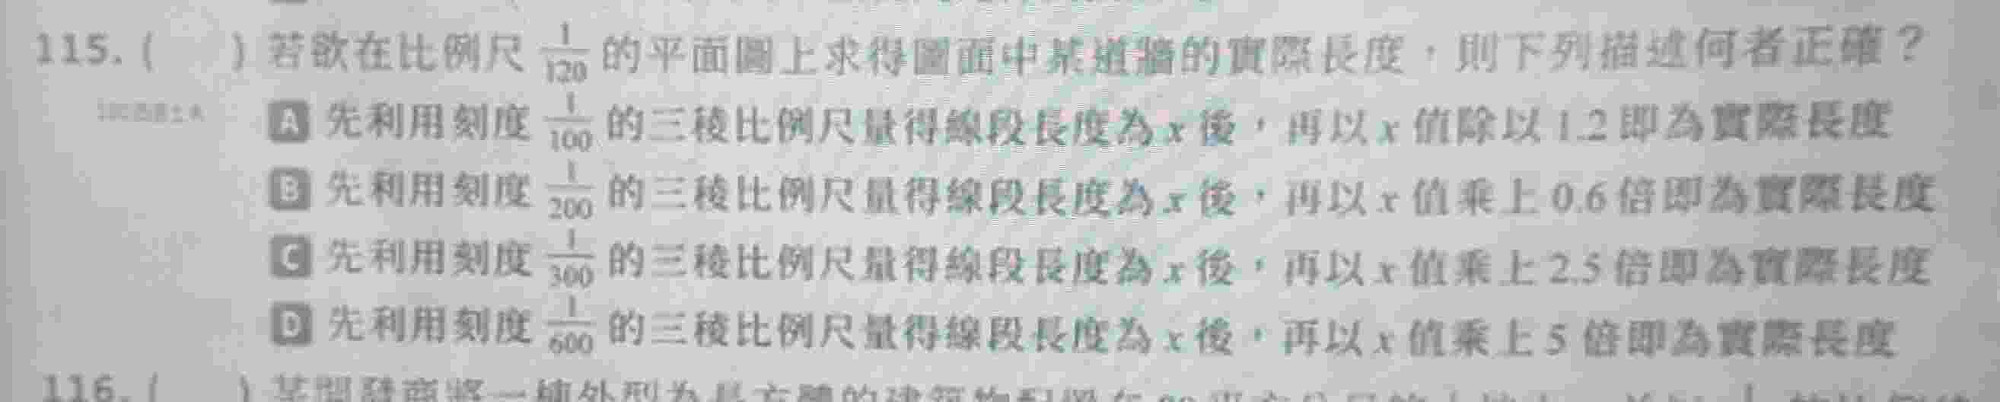 115. (　) 若欲在比例尺 1/120 的平面圖上求得圖面中某道牆的實際長度，則下列描述何者正確？
A 先利用刻度 1/100 的三稜比例尺量得線段長度為 x 後，再以 x 值除以 1.2 即為實際長度
B 先利用刻度 1/200 的三稜比例尺量得線段長度為 x 後，再以 x 值乘上 0.6 倍即為實際長度
C 先利用刻度 1/300 的三稜比例尺量得線段長度為 x 後，再以 x 值乘上 2.5 倍即為實際長度
D 先利用刻度 1/600 的三稜比例尺量得線段長度為 x 後，再以 x 值乘上 5 倍即為實際長度
116. (　) 某開發商將一棟外型為長方體的建築物配置在